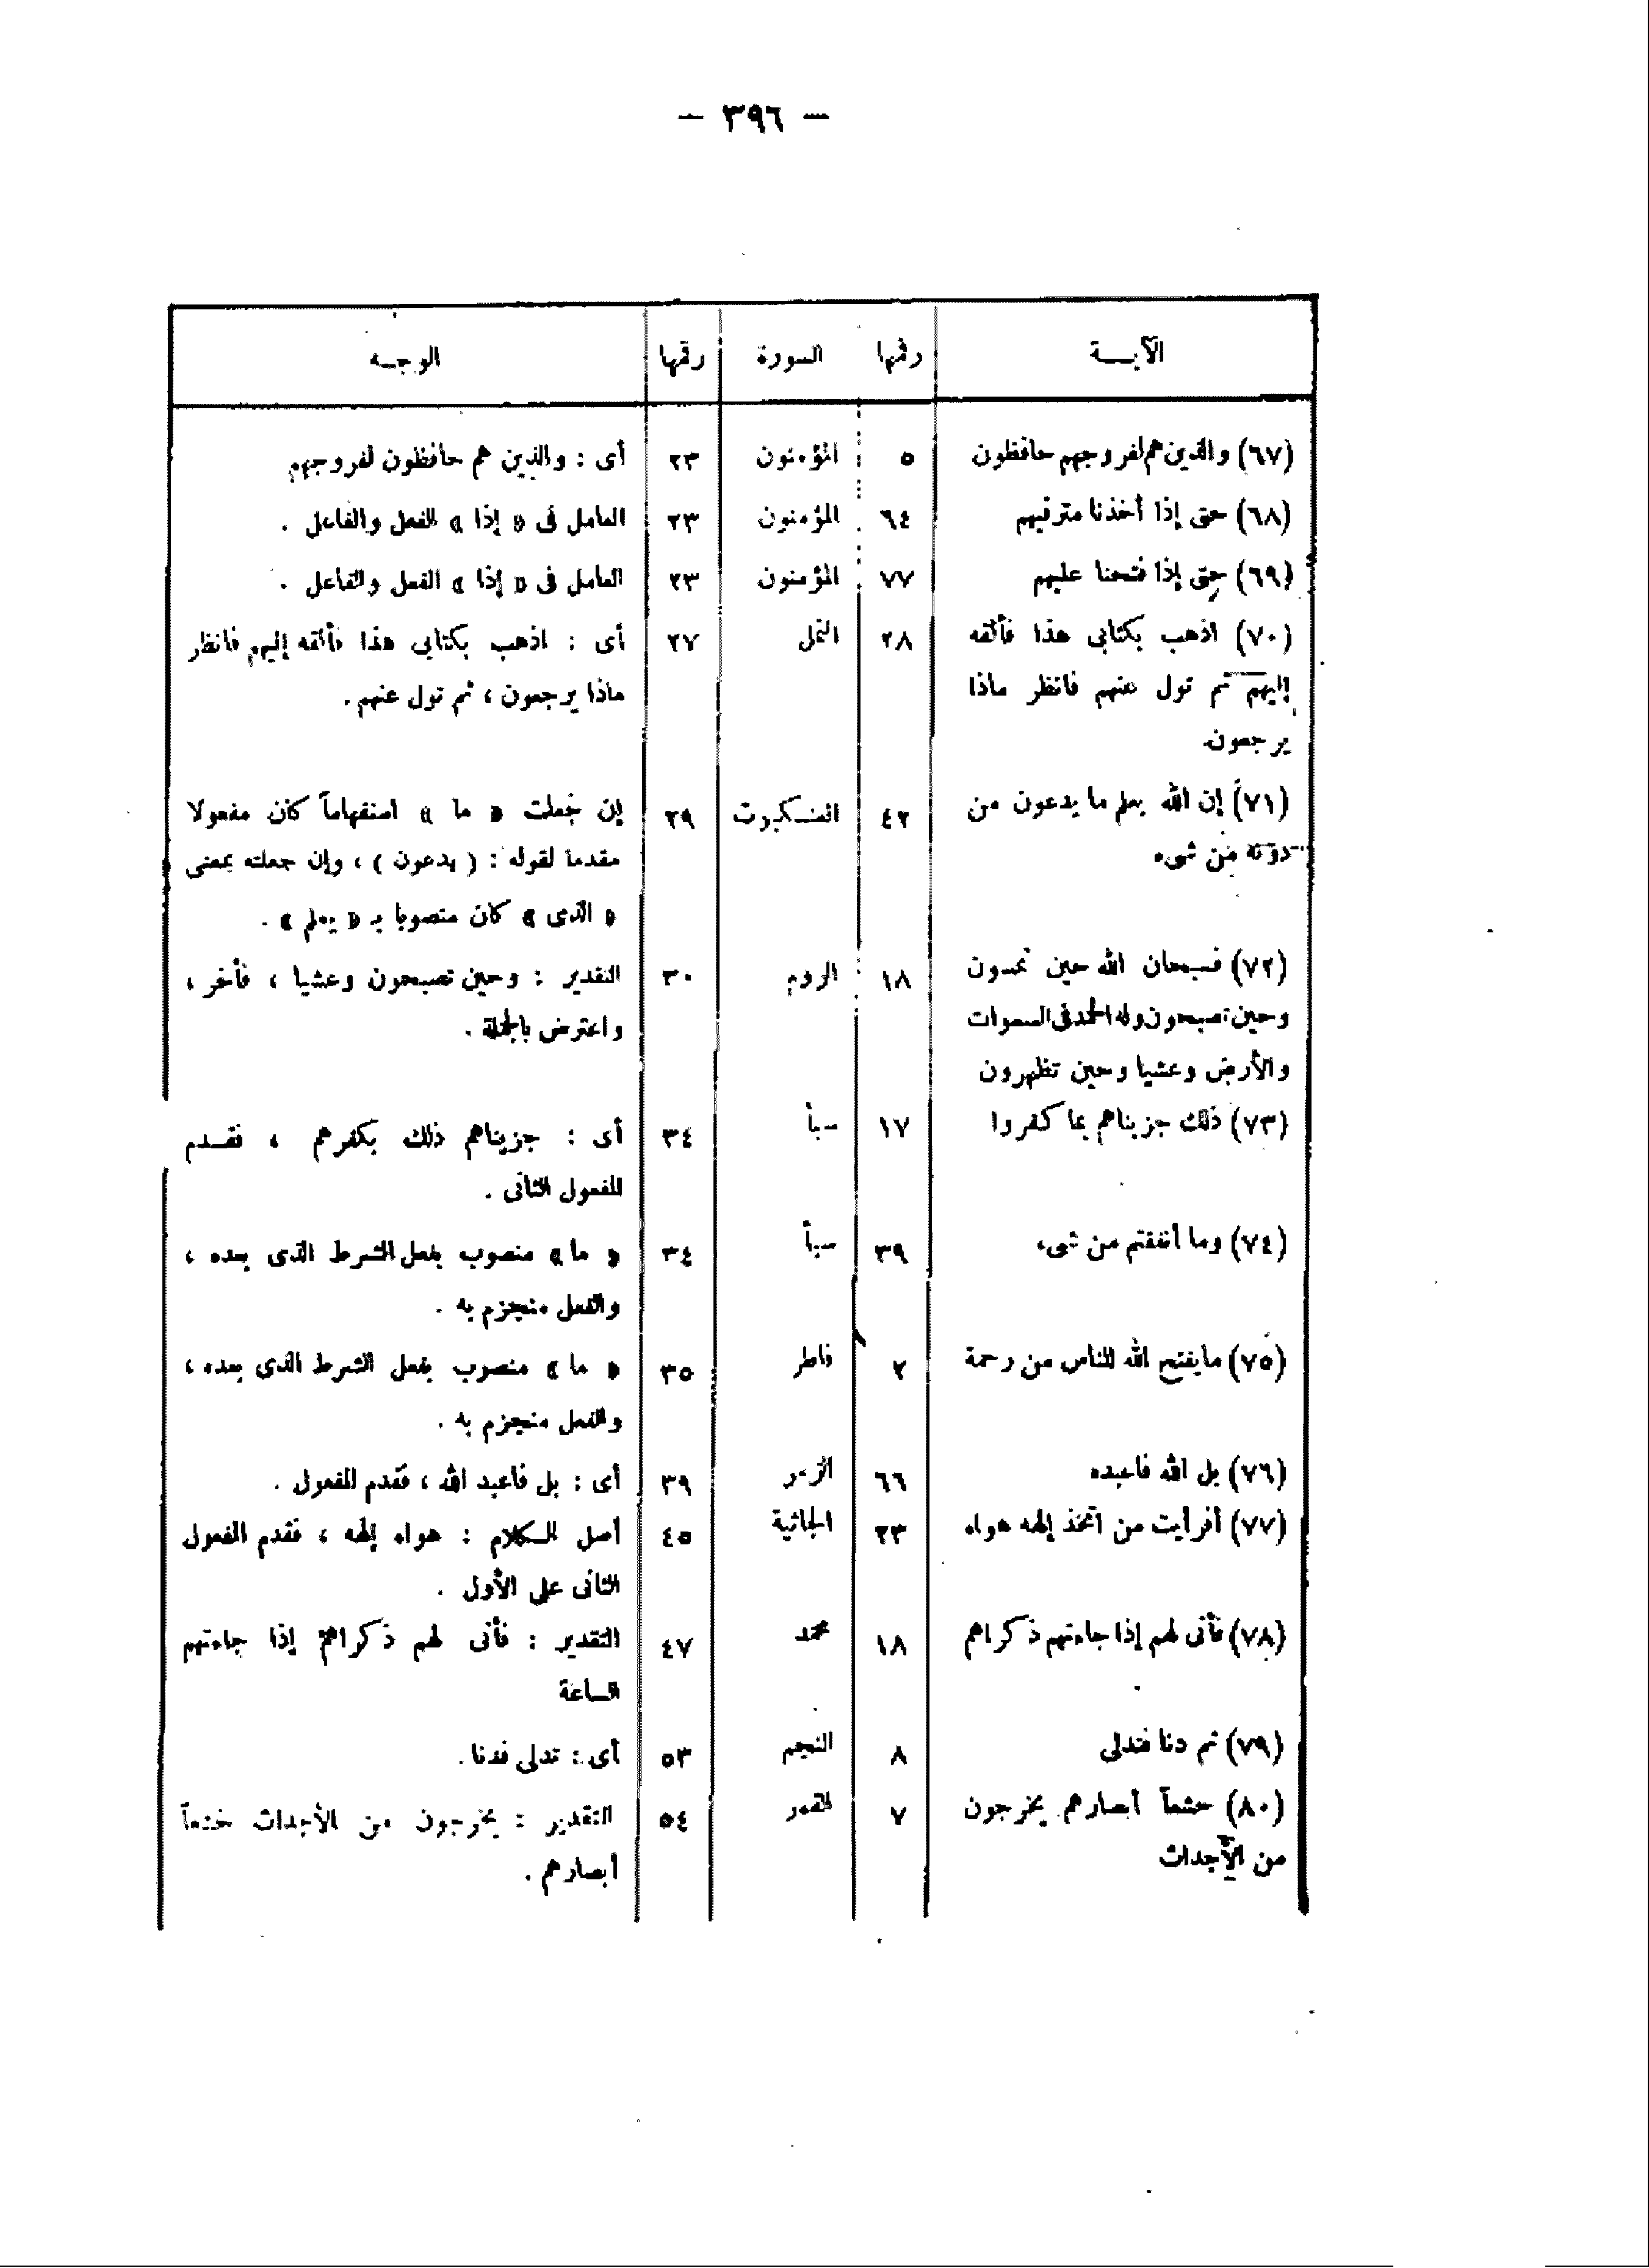 — ٣٩٦ —
الآيـــة رقمها السورة رقمها الوجـه
(٦٧) والذين هم لفروجهم حافظون ٥ المؤمنون ٢٣ أى : والذين هم حافظون لفروجهم
(٦٨) حتى إذا أخذنا مترفيهم ٦٤ المؤمنون ٢٣ العامل فى « إذا » الفعل والفاعل .
(٦٩) حتى إذا فتحنا عليهم ٧٧ المؤمنون ٢٣ العامل فى « إذا » الفعل والفاعل .
(٧٠) اذهب بكتابى هذا فألقه ٢٨ النمل ٢٧ أى : اذهب بكتابى هذا فألقه إليهم فانظر
إليهم ثم تول عنهم فانظر ماذا ماذا يرجعون ، ثم تول عنهم .
يرجعون
(٧١) إن الله يعلم ما يدعون من ٤٢ العنكبوت ٢٩ إن جعلت « ما » استفهاماً كان مفعولا
دونه من شىء مقدما لقوله : ( يدعون ) ، وإن جعلته بمعنى
« الذى » كان منصوبا بـ « يعلم » .
(٧٢) فسبحان الله حين تمسون ١٨ الروم ٣٠ التقدير : وحين تصبحون وعشيا ، فأخر ،
وحين تصبحون وله الحمد فى السموات واعترض بالجملة .
والأرض وعشيا وحين تظهرون
(٧٣) ذلك جزيناهم بما كفروا ١٧ سبأ ٣٤ أى : جزيناهم ذلك بكفرهم ، فقـدم
المفعول الثانى .
(٧٤) وما أنفقتم من شىء ٣٩ سبأ ٣٤ « ما » منصوب بفعل الشرط الذى بعده ،
والفعل منجزم به .
(٧٥) ما يفتح الله للناس من رحمة ٢ فاطر ٣٥ « ما » منصوب بفعل الشرط الذى بعده ،
والفعل منجزم به .
(٧٦) بل الله فاعبده ٦٦ الزمر ٣٩ أى : بل فاعبد الله ، فقدم المفعول .
(٧٧) أفرأيت من اتخذ إلهه هواه ٢٣ الجاثية ٤٥ أصل الكلام : هواه إلهه ، فقدم المفعول
الثانى على الأول .
(٧٨) فأنى لهم إذا جاءتهم ذكراهم ١٨ محمد ٤٧ التقدير : فأنى لهم ذكراهم إذا جاءتهم
الساعة
(٧٩) ثم دنا فتدلى ٨ النجم ٥٣ أى : تدلى فدنا .
(٨٠) خشعاً أبصارهم يخرجون ٧ القمر ٥٤ التقدير : يخرجون من الأجداث خشعاً
من الأجداث أبصارهم .